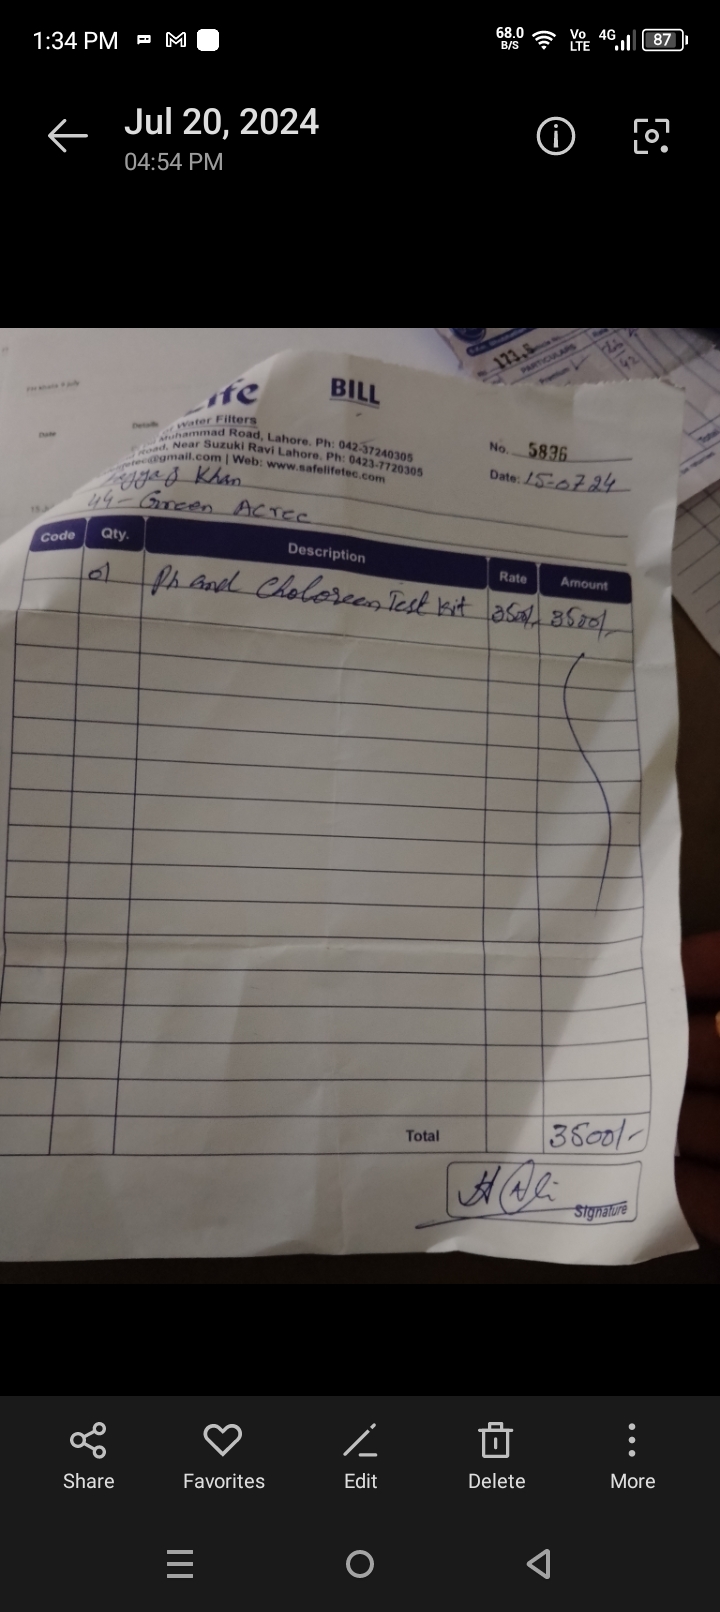 1:34 PM
68.0 B/S
Vo LTE
4G
87
Jul 20, 2024
04:54 PM
BILL
Water Filters
Muhammad Road, Lahore. Ph: 042-37240305
Road, Near Suzuki Ravi Lahore. Ph: 0423-7720305
@gmail.com | Web: www.safelifetec.com
No. 5836
Date: 15-0724
Khan
44- Green Acree
Code Qty. Description Rate Amount
01 Ph and Choloreen Test Kit 3500/- 3500/-
Total 3500/-
Signature
PARTICULARS
Date
Details
Share
Favorites
Edit
Delete
More